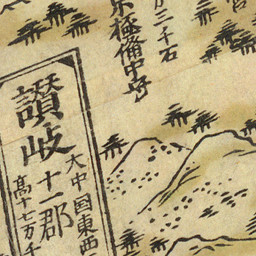 万三千石
京極備中守
讃岐 十一郡
大中国東西
高十七万千